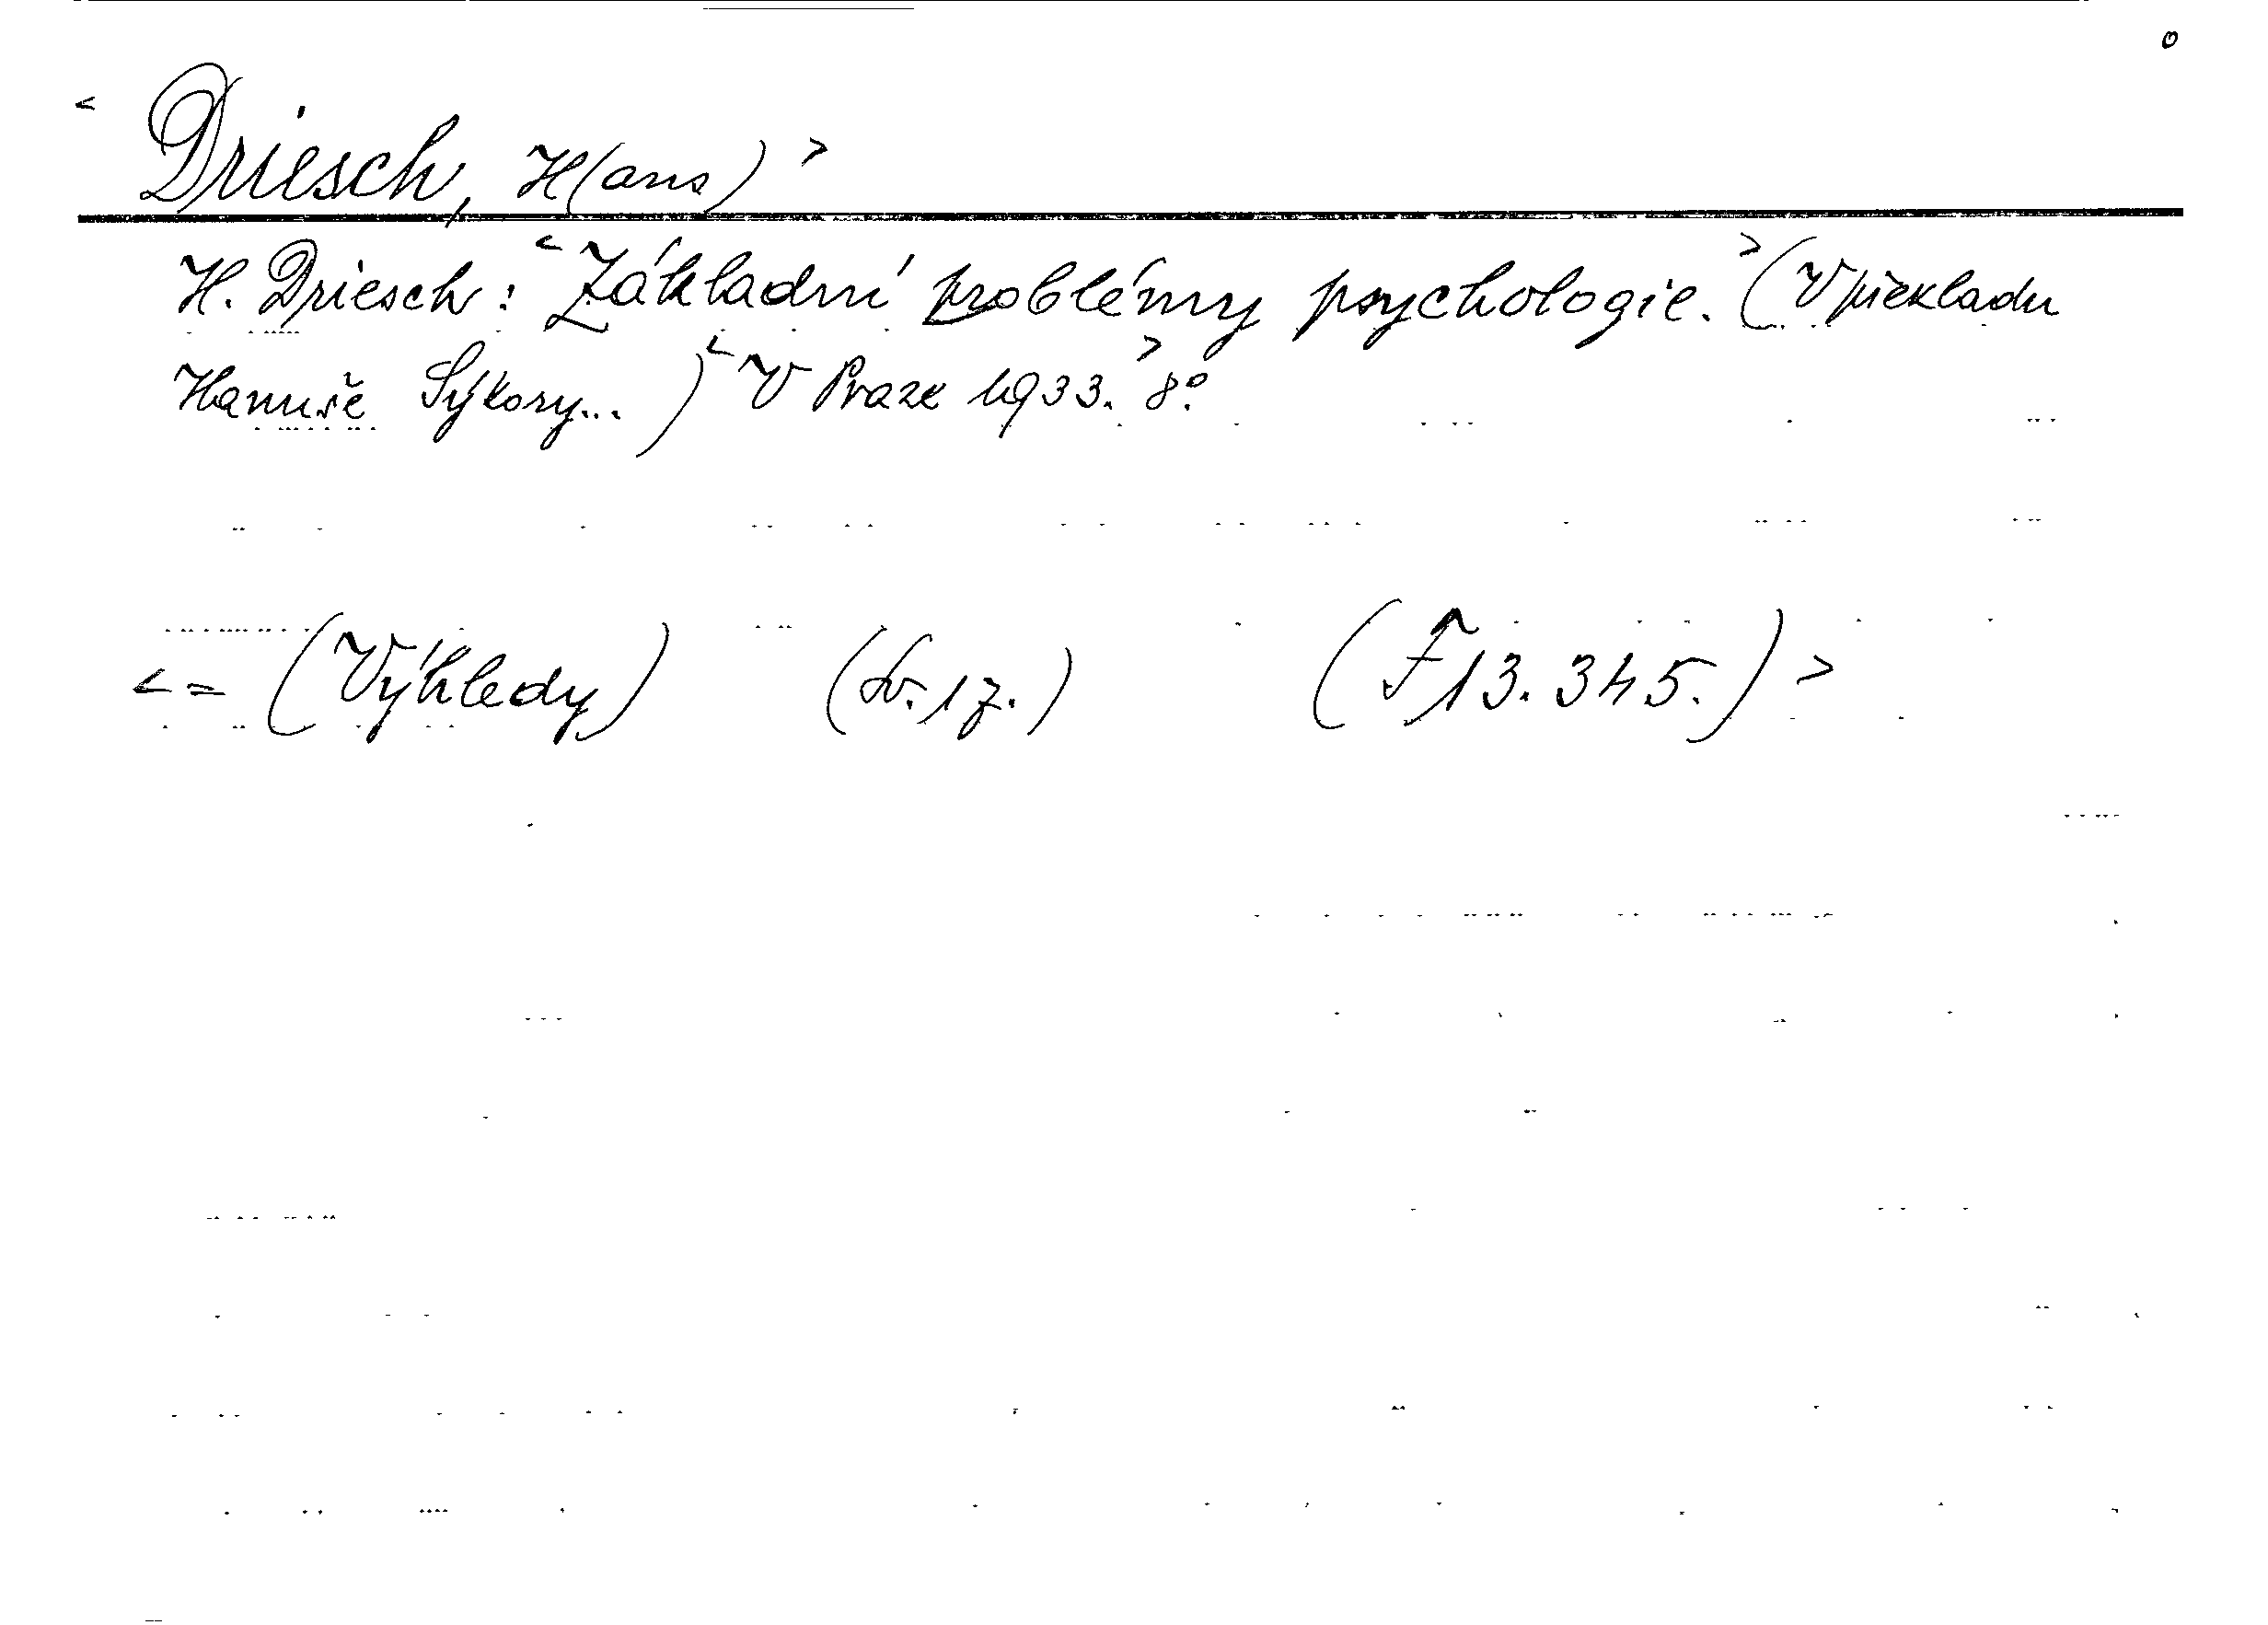 o
< Driesch, H(ans) >
H. Driesch: < Základní problémy psychologie. > (V překladu
Hanuše Sýkory...) < V Praze 1933. > 8º.
< = (Výhledy) (Sv. 17.) (F 13.345.) >